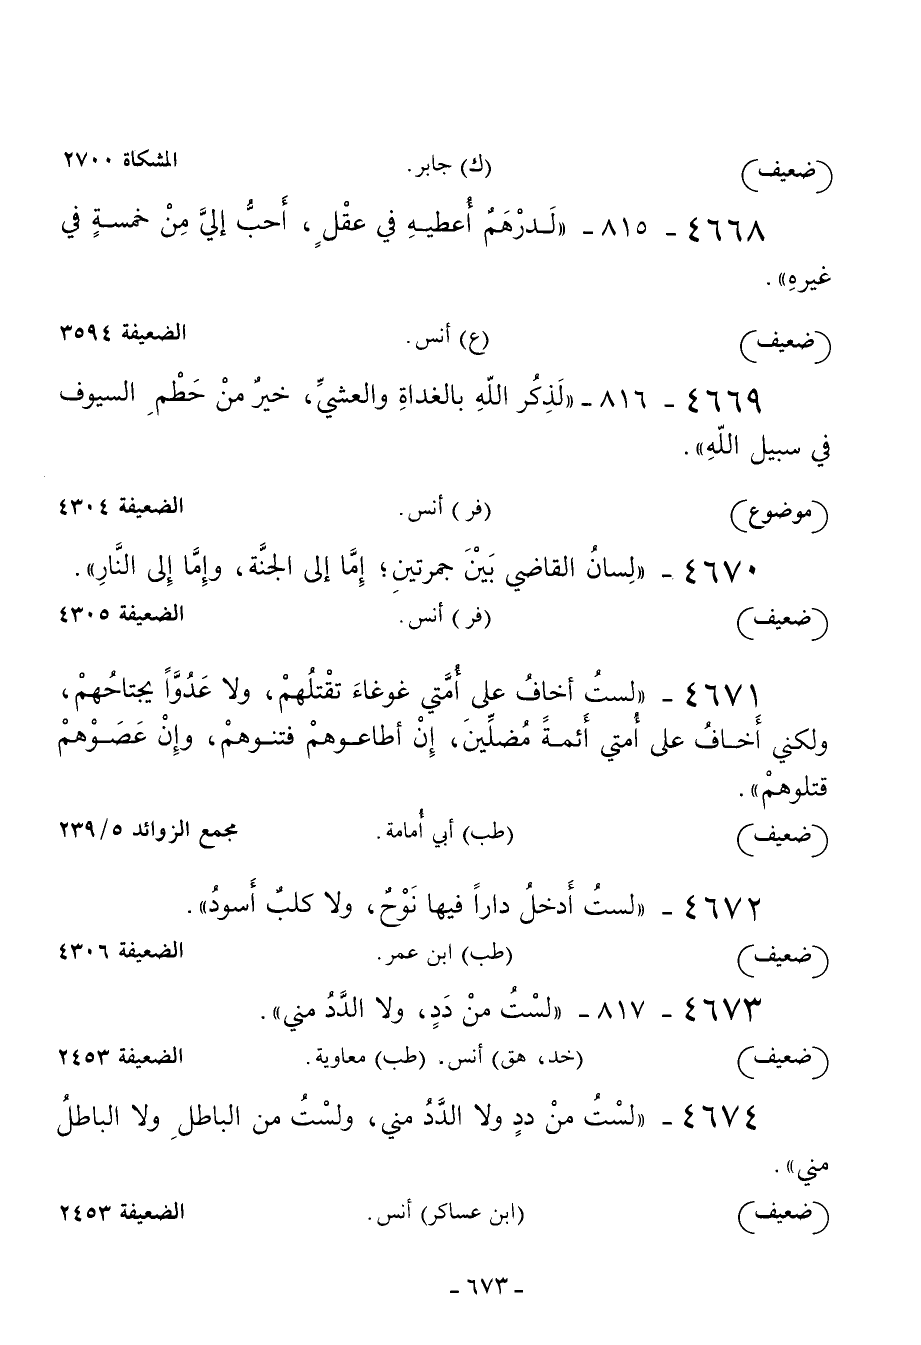 (ضعيف) (ك) جابر. المشكاة ٢٧٠٠
٤٦٦٨ - ٨١٥ - «لَـدرْهَمٌ أُعطيـهِ في عقْلٍ، أَحبُّ إليَّ مِنْ خمسـةٍ في
غيرهِ».
(ضعيف) (ع) أنس. الضعيفة ٣٥٩٤
٤٦٦٩ - ٨١٦ - «لَذِكُر اللّهِ بالغداةِ والعشيِّ، خيرٌ منْ حَطْمِ السيوف
في سبيل اللّهِ».
(موضوع) (فر) أنس. الضعيفة ٤٣٠٤
٤٦٧٠ - «لِسانُ القاضي بَيْنَ جمرتينِ؛ إِمَّا إلى الجنَّة، وإِمَّا إِلى النَّارِ».
(ضعيف) (فر) أنس. الضعيفة ٤٣٠٥
٤٦٧١ - «لستُ أخافُ على أُمَّتي غوغاءَ تقْتلُهمْ، ولا عَدُوَّاً يجتاحُهمْ،
ولكني أَخـافُ على أُمتي أَئمـةً مُضلِّينَ، إِنْ أطاعـوهمْ فتنـوهمْ، وإِنْ عَصَـوْهمْ
قتلوهمْ».
(ضعيف) (طب) أبي أُمامة. مجمع الزوائد ٥/ ٢٣٩
٤٦٧٢ - «لستُ أَدخلُ داراً فيها نَوْحٌ، ولا كلبٌ أَسودُ».
(ضعيف) (طب) ابن عمر. الضعيفة ٤٣٠٦
٤٦٧٣ - ٨١٧ - «لسْتُ منْ دَدٍ، ولا الدَّدُ مني».
(ضعيف) (خد، هق) أنس. (طب) معاوية. الضعيفة ٢٤٥٣
٤٦٧٤ - «لسْتُ منْ ددٍ ولا الدَّدُ مني، ولسْتُ من الباطلِ ولا الباطلُ
مني».
(ضعيف) (ابن عساكر) أنس. الضعيفة ٢٤٥٣
- ٦٧٣ -